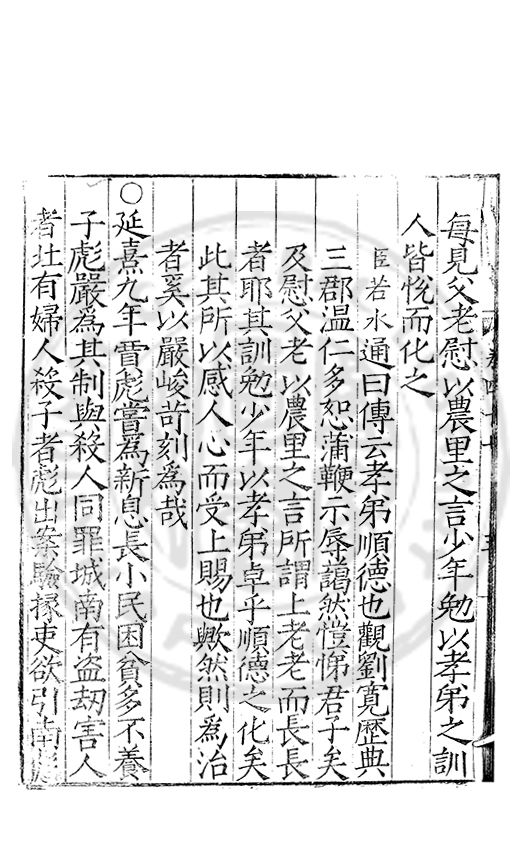 每見父老慰以農里之言少年勉以孝弟之訓
人皆悅而化之
臣若水通曰傳云孝弟順德也觀劉寛歴典
三郡温仁多恕蒲鞭示辱藹然愷悌君子矣
及慰父老以農里之言所謂上老老而長長
者耶其訓勉少年以孝弟卓乎順德之化矣
此其所以感人心而受上賜也歟然則為治
者奚以嚴峻苛刻為哉
○延熹九年賈彪嘗為新息長小民困貧多不養
子彪嚴為其制與殺人同罪城南有盗刼害人
者北有婦人殺子者彪出案驗掾吏欲引南